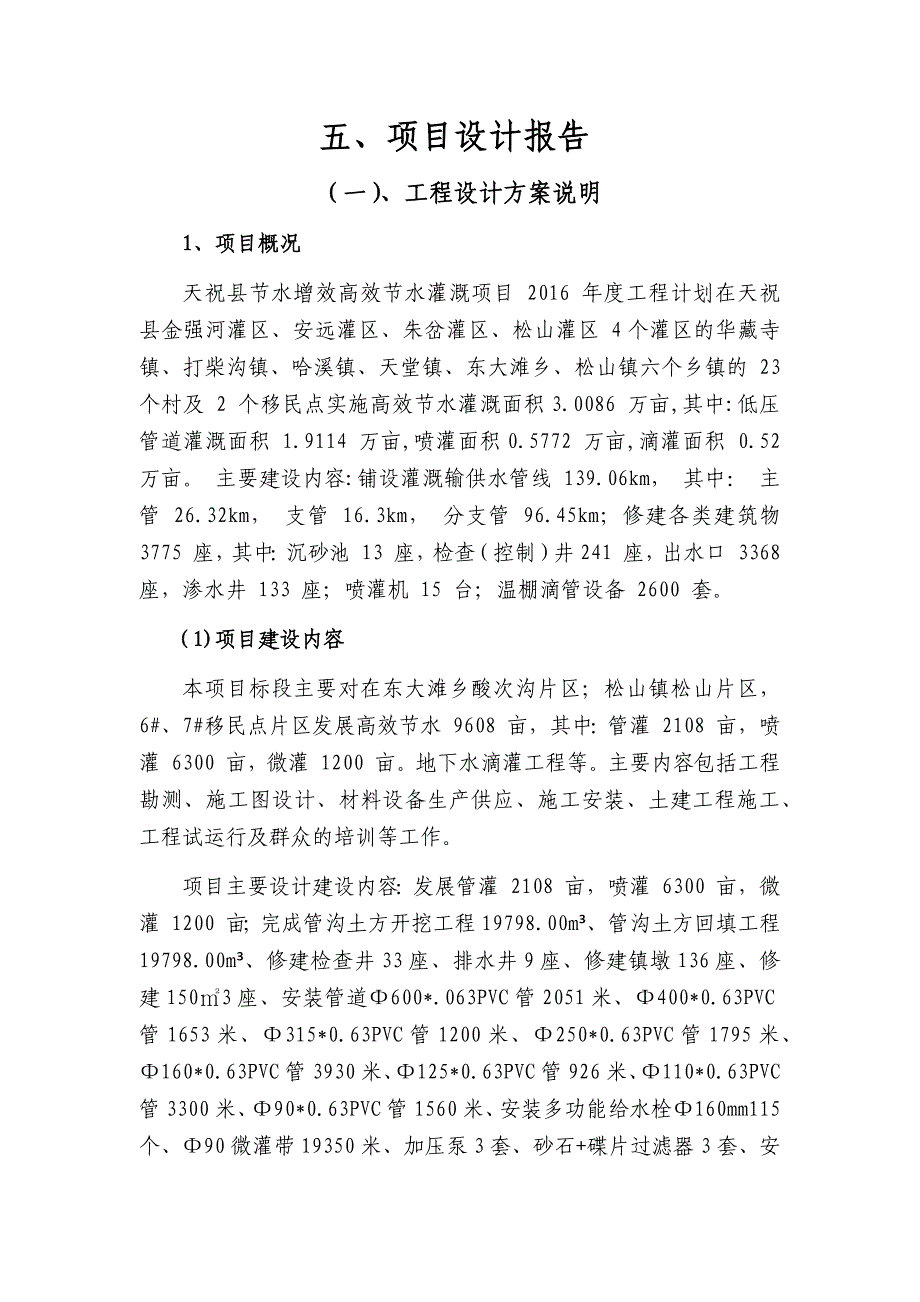 五、项目设计报告
(一)、工程设计方案说明
1、项目概况
天祝县节水增效高效节水灌溉项目 2016 年度工程计划在天祝
县金强河灌区、安远灌区、朱岔灌区、松山灌区 4个灌区的华藏寺
镇、打柴沟镇、哈溪镇、天堂镇、东大滩乡、松山镇六个乡镇的 23
个村及 2 个移民点实施高效节水灌溉面积3.0086 万亩,其中:低压
管道灌溉面积 1.9114 万亩,喷灌面积0.5772 万亩,滴灌面积 0.52
万亩。 主要建设内容:铺设灌溉输供水管线 139.06km， 其中： 主
管 26.32km， 支管 16.3km， 分支管 96.45km；修建各类建筑物
3775 座,其中:沉砂池 13 座,检查(控制)井241 座,出水口 3368
座，渗水井 133 座；喷灌机 15 台；温棚滴管设备 2600 套。
(1)项目建设内容
本项目标段主要对在东大滩乡酸次沟片区；松山镇松山片区，
6#、7#移民点片区发展高效节水 9608 亩，其中:管灌 2108 亩，喷
灌 6300 亩，微灌 1200 亩。地下水滴灌工程等。主要内容包括工程
勘测、施工图设计、材料设备生产供应、施工安装、土建工程施工、
工程试运行及群众的培训等工作。
项目主要设计建设内容:发展管灌 2108 亩，喷灌 6300 亩，微
灌 1200 亩;完成管沟土方开挖工程19798.00m³、管沟土方回填工程
19798.00m³、修建检查井33座、排水井9座、修建镇墩136座、修
建150㎡3座、安装管道Φ600*.063PVC管2051米、Φ400*0.63PVC
管1653米、Φ315*0.63PVC管1200米、Φ250*0.63PVC管1795米、
Φ160*0.63PVC管3930米、Φ125*0.63PVC管926米、Φ110*0.63PVC
管3300米、Φ90*0.63PVC管1560米、安装多功能给水栓Φ160mm115
个、Φ90微灌带19350米、加压泵3套、砂石+碟片过滤器3套、安